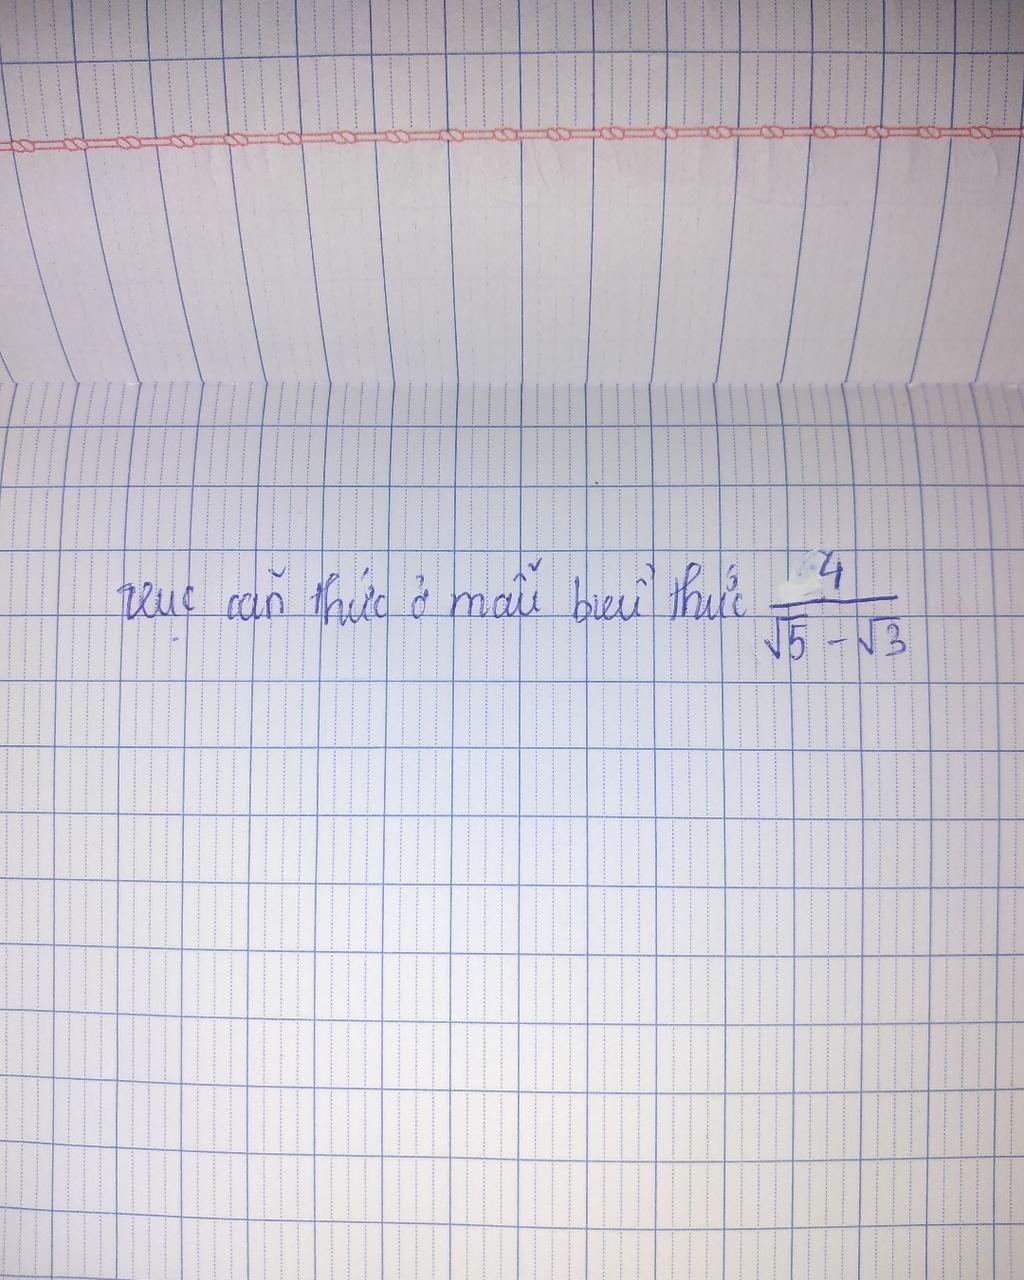 trục căn thức ở mẫu biểu thức 4/(√5 - √3)